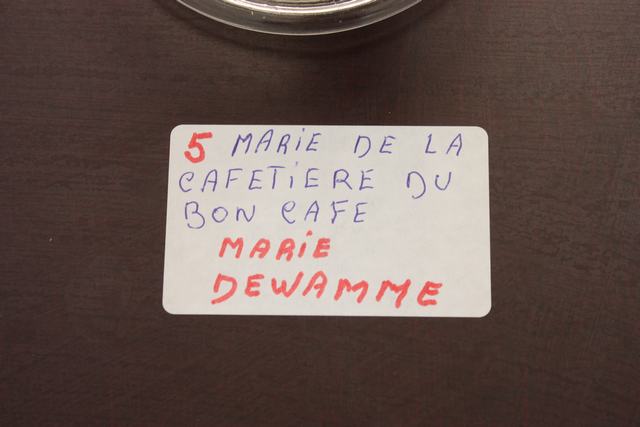 5 MARiE DE LA
CAFETiERE DU
BON CAFE
MARiE
DEWAMME